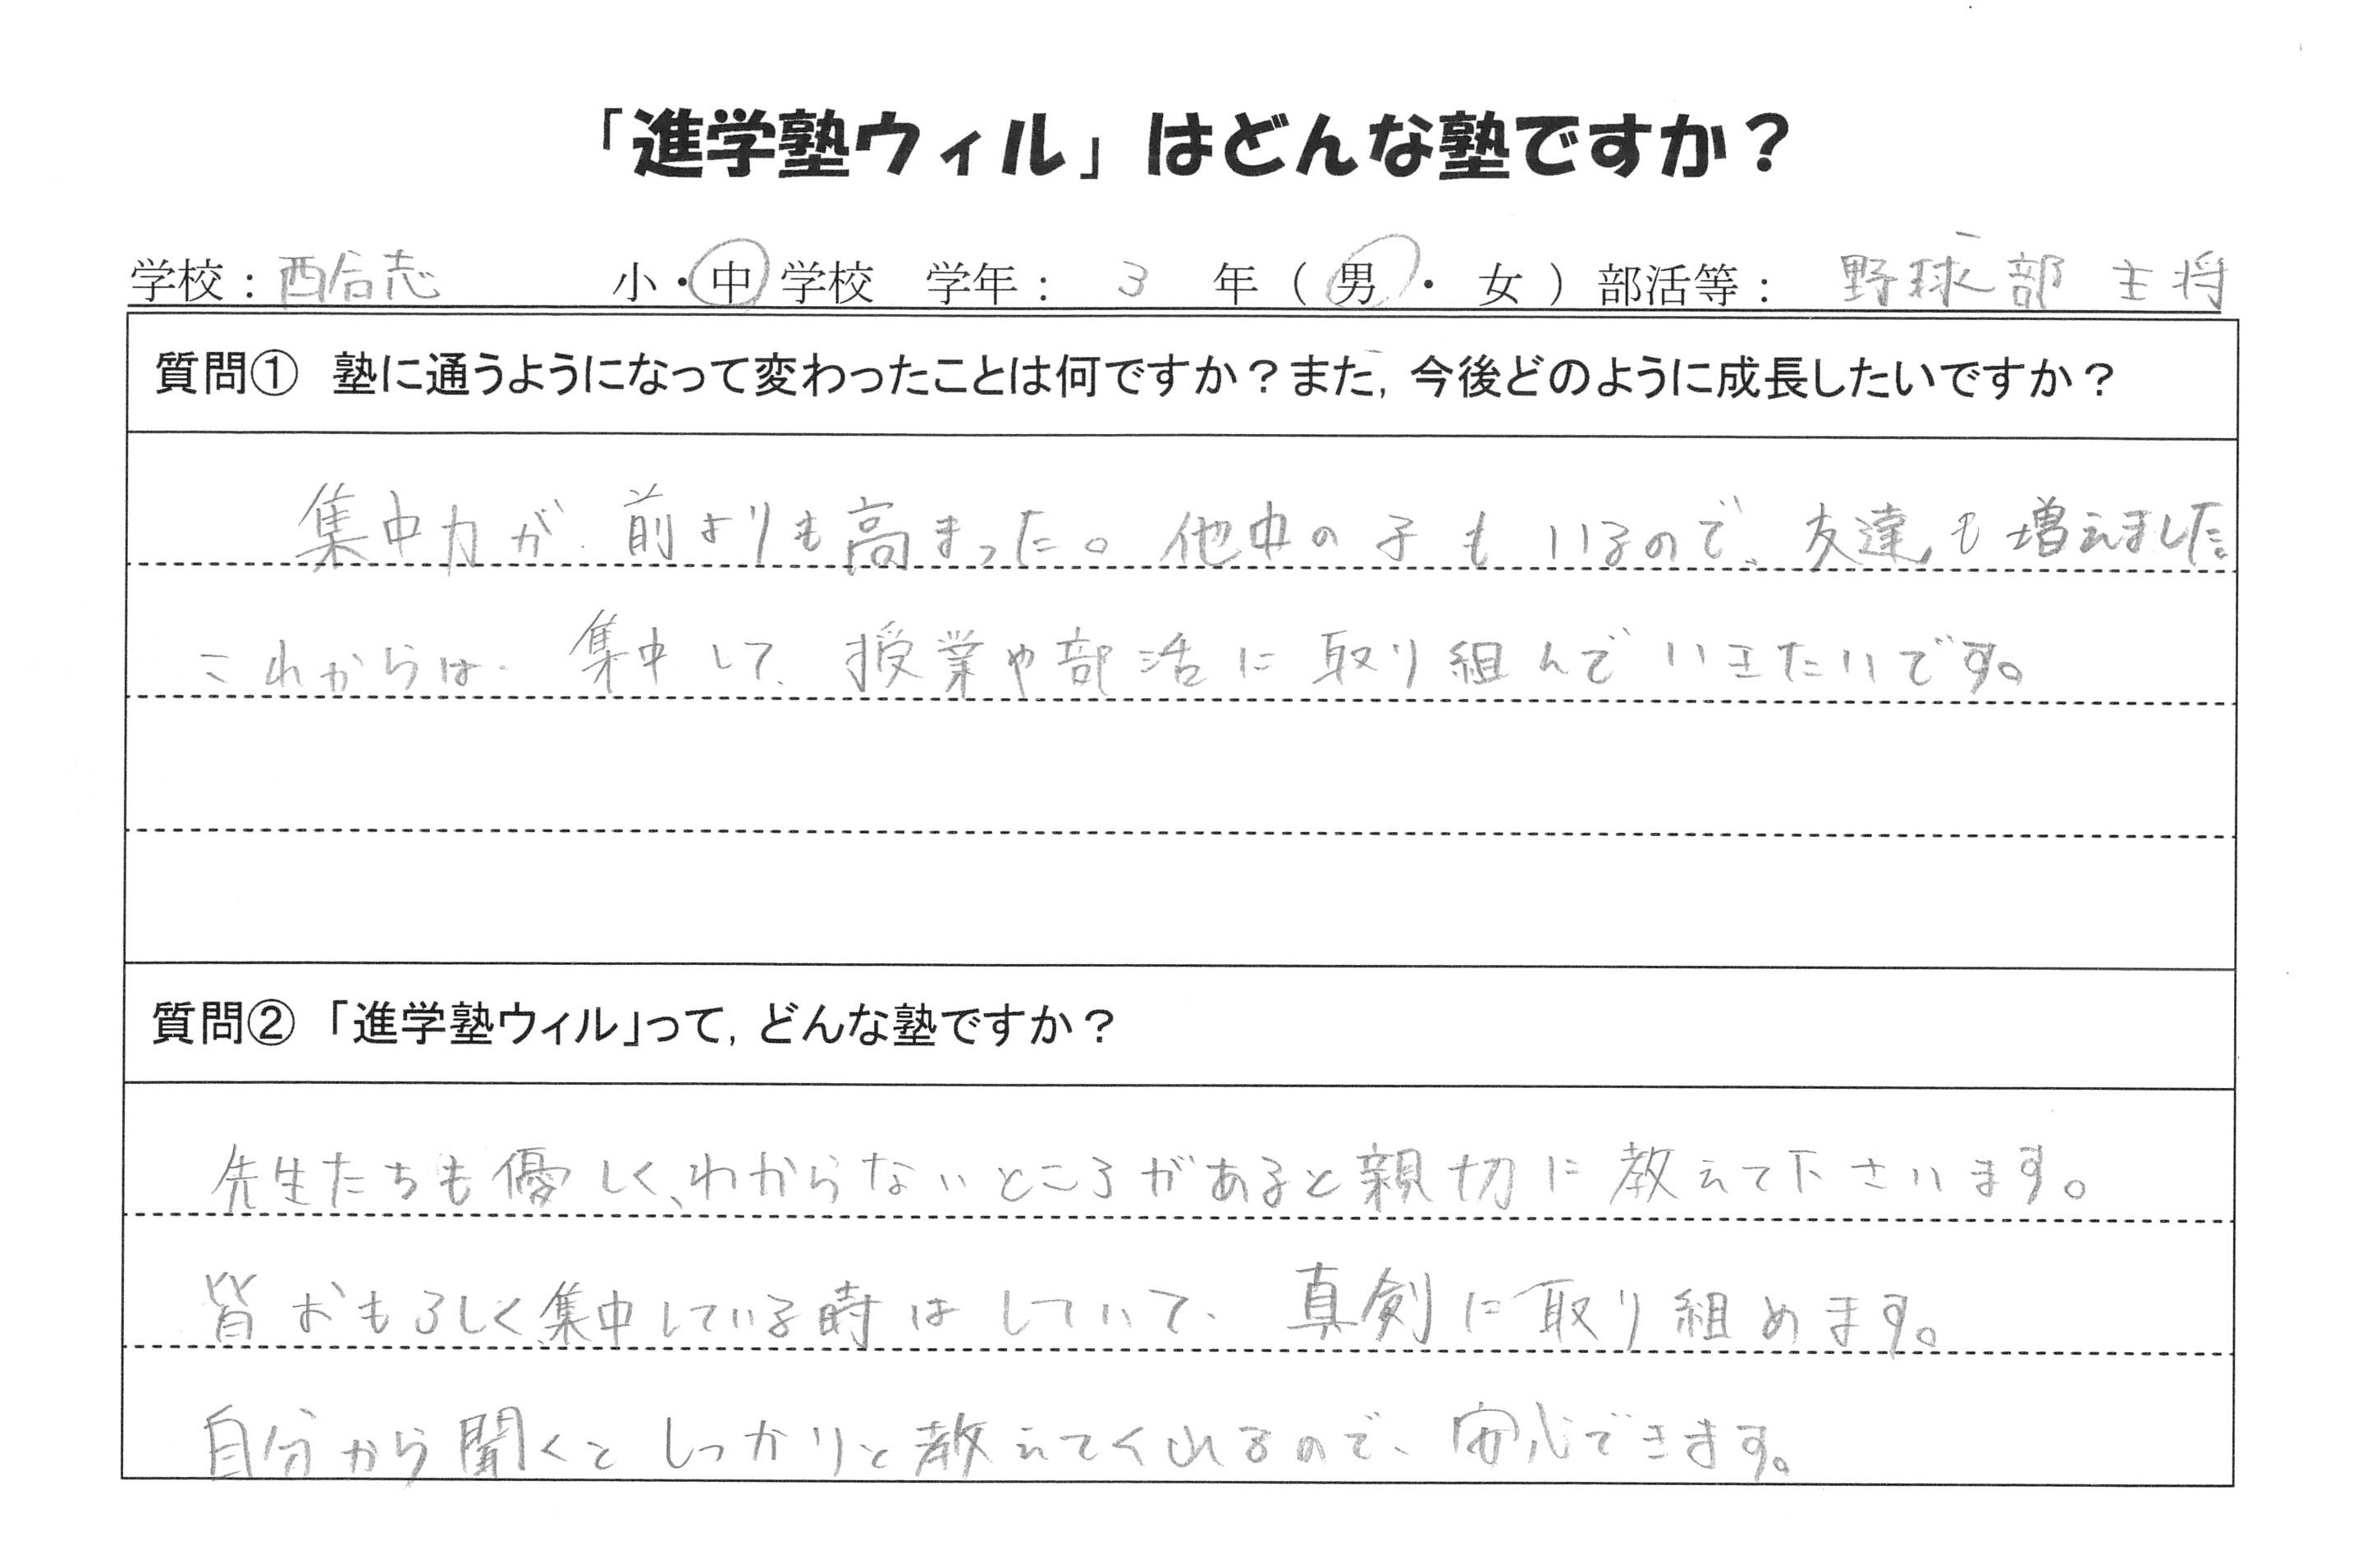 「進学塾ウィル」はどんな塾ですか？
学校：西合志 小・中 学校 学年： 3 年（ 男 ・ 女 ）部活等： 野球部 主将
質問① 塾に通うようになって変わったことは何ですか？また，今後どのように成長したいですか？
集中力が、前よりも高まった。他中の子もいるので、友達も増えました。
これからは、集中して、授業や部活に取り組んでいきたいです。
質問② 「進学塾ウィル」って，どんな塾ですか？
先生たちも優しく、わからないところがあると親切に教えて下さいます。
皆おもろしく、集中している時はしていて、真剣に取り組めます。
自分から聞くとしっかりと教えてくれるので、安心できます。